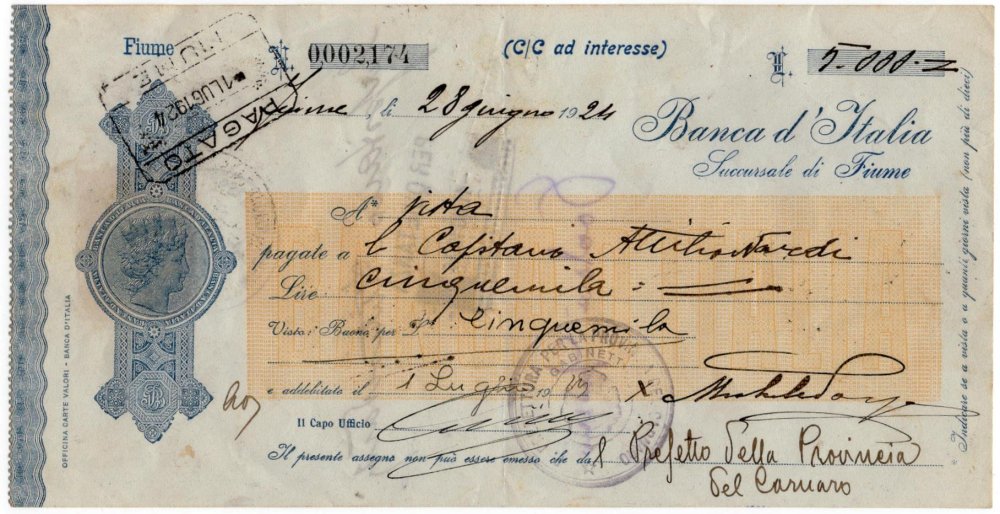 Fiume N. 0,002,174 (C/C ad interesse) L. 5.000.-
Fiume, li 28 giugno 1924
Banca d'Italia
Succursale di Fiume
PAGATO
1 LUG 1924
FIUME
A* vista
pagate a l Capitano Attilio Nardi
Lire cinquemila =
Visto: Buono per L. Cinquemila
e addebitato il 1 Luglio 1924
Il Capo Ufficio
Il presente assegno non può essere emesso che da
Prefetto della Provincia
del Carnaro
PER LA PROVIN
GABINETT
OFFICINA CARTE VALORI - BANCA D'ITALIA
* Indicare se a vista o a quanti giorni vista (non più di dieci)